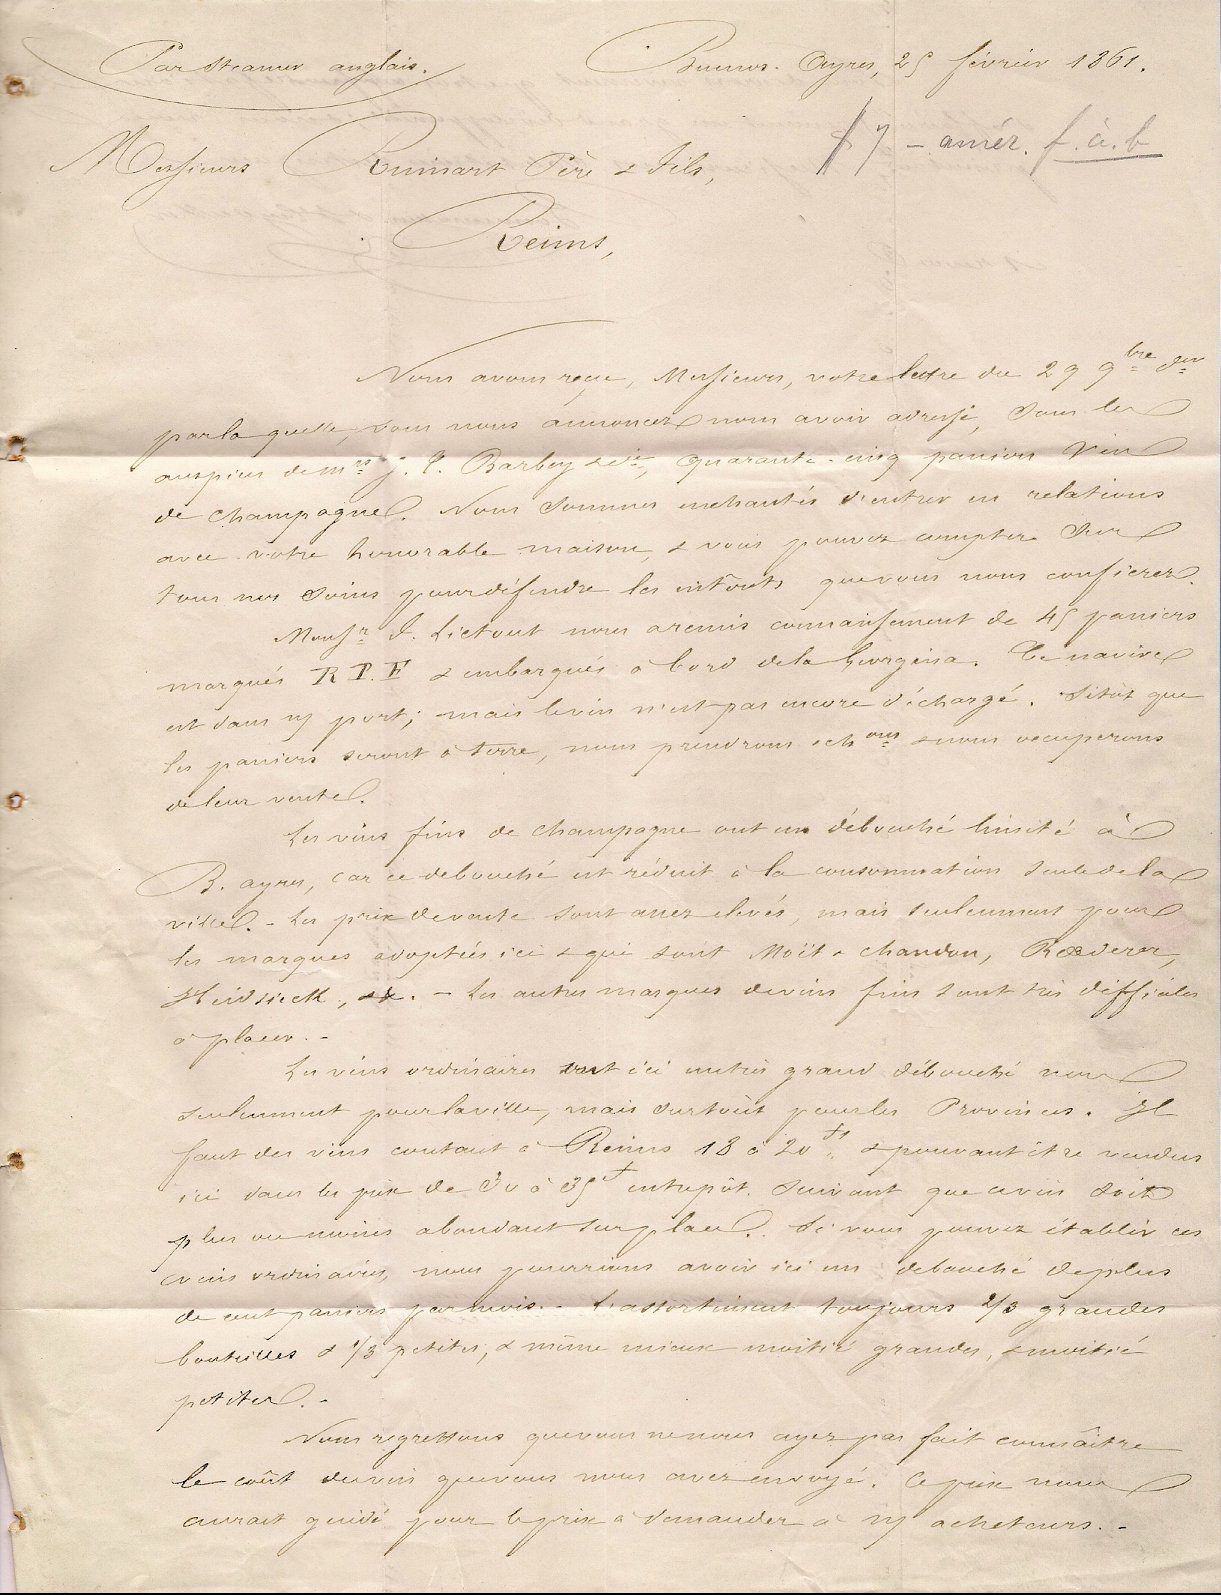 Par Steamer anglais.
Buenos-Ayres, 25 février 1861.
$ 7 - amér. f. à. b
Messieurs Ruinart Père & Fils,
Reims,
Nous avons reçu, Messieurs, votre lettre du 29 9bre der
par laquelle, vous nous annoncez nous avoir adressé, sous les
auspices de Mrs J. P. Barbey & Cie, quarante-cinq paniers Vin
de Champagne. Nous sommes enchantés d'entrer en relations
avec votre honorable maison, & vous pouvez compter sur
tous nos soins pour défendre les intérêts que vous nous confierez.
Monsr J. Lietout nous a remis connaissement de 45 paniers
marqués R P. F & embarqués à bord de la Georgina. Ce navire
est dans n/ port; mais le vin n'est pas encore déchargé. Sitôt que
les paniers seront à terre, nous prendrons échons & nous occuperons
de leur vente.
Les vins fins de Champagne ont un débouché limité à
B. ayres, car ce debouché est réduit à la consommation seule de la
ville. - Les prix de vente sont assez elevés, mais seulement pour
les marques adoptées ici & qui sont Moët & Chandon, Rœderer,
Heidsieck, &c. - Les autres marques de vins fins sont très difficiles
à placer. -
Les vins ordinaires ont ici un très grand débouché non
seulement pour la ville, mais surtout pour les Provinces. Il
faut des vins coutant à Reims 18 à 20 fs & pouvant être vendus
ici dans les prix de 30 à 35 f entrepôt. Suivant que ce vin soit
plus ou moins abondant sur place. Si vous pouvez établir ces
vins ordinaires, nous pourrions avoir ici un débouché de plus
de cent paniers par mois. - L'assortiment toujours 2/3 grandes
bouteilles & 1/3 petites, & même mieux moitié grandes, & moitié
petites. -
Nous regrettons que vous ne nous ayez pas fait connaître
le coût du vin que vous nous avez envoyé. Ce prix nous
aurait guidé pour le prix à demander à n/ acheteurs. -